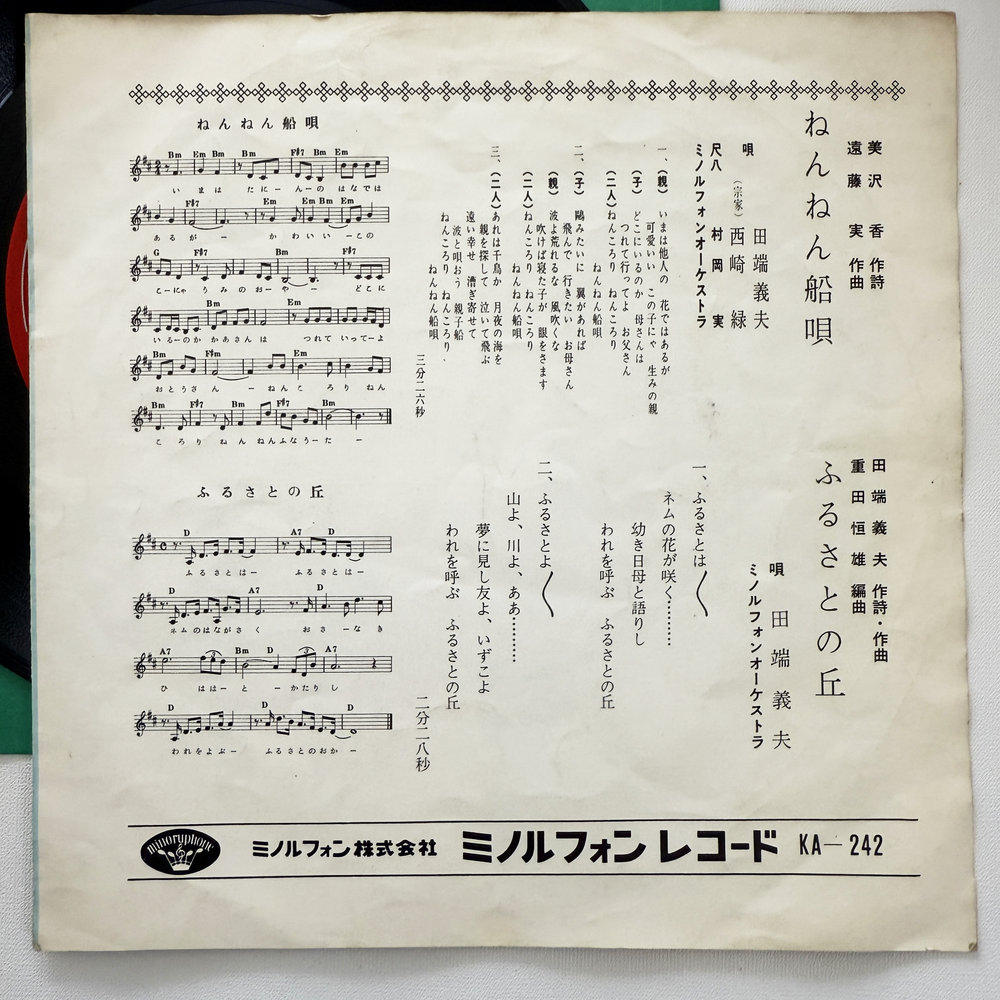 ねんねん船唄
美沢 香 作詩
遠藤 実 作曲
唄 田端義夫
(宗家) 西崎 緑
尺八 村岡 実
ミノルフォンオーケストラ
一、(親) いまは他人の 花ではあるが
可愛いい この子にゃ 生みの親
(子) どこにいるのか 母さんは
つれて行ってよ お父さん
(二人) ねんころり ねんころり
ねんねん船唄
二、(子) 鷗みたいに 翼があれば
飛んで 行きたい お母さん
(親) 波よ荒れるな 風吹くな
吹けば寝た子が 眼をさます
(二人) ねんころり ねんころり
ねんねん船唄
三、(二人) あれは千鳥か 月夜の海を
親を探して 泣いて飛ぶ
遠い幸せ 漕ぎ寄せて
波と唄おう 親子船
ねんころり ねんころり
ねんねん船唄
三分二六秒
ねんねん船唄
Bm Em Bm Bm F♯7 Bm Em
いまは たにんーの はなでは
F♯7 Em Em F♯7
あるが ー かわいいーこの
G F♯7 Bm F♯7
こーにゃ うみのおーやー どこに
Bm Em
いるーのか かあさんは つれていってーよ
Bm F♯m Em Bm
おとうさん ー ねんころりねん
Bm F♯7 Bm F♯7 Bm
ころりねんねんふなうーたー
ふるさとの丘
田端義夫 作詩・作曲
重田恒雄 編曲
唄 田端義夫
ミノルフォンオーケストラ
一、ふるさとは〱
ネムの花が咲く………
幼き日母と語りし
われを呼ぶ ふるさとの丘
二、ふるさとよ〱
山よ、川よ、ああ………
夢に見し友よ、いずこよ
われを呼ぶ ふるさとの丘
二分二八秒
ふるさとの丘
D A7 D
ふるさとはー ふるさとはー
D A7 D
ネムのはながさく おさーなき
A7 Bm D A7
ひ ははーと ーかたりし
D D
われをよぶー ふるさとのおかー
minoruphone
ミノルフォン株式会社 ミノルフォンレコード KA—242